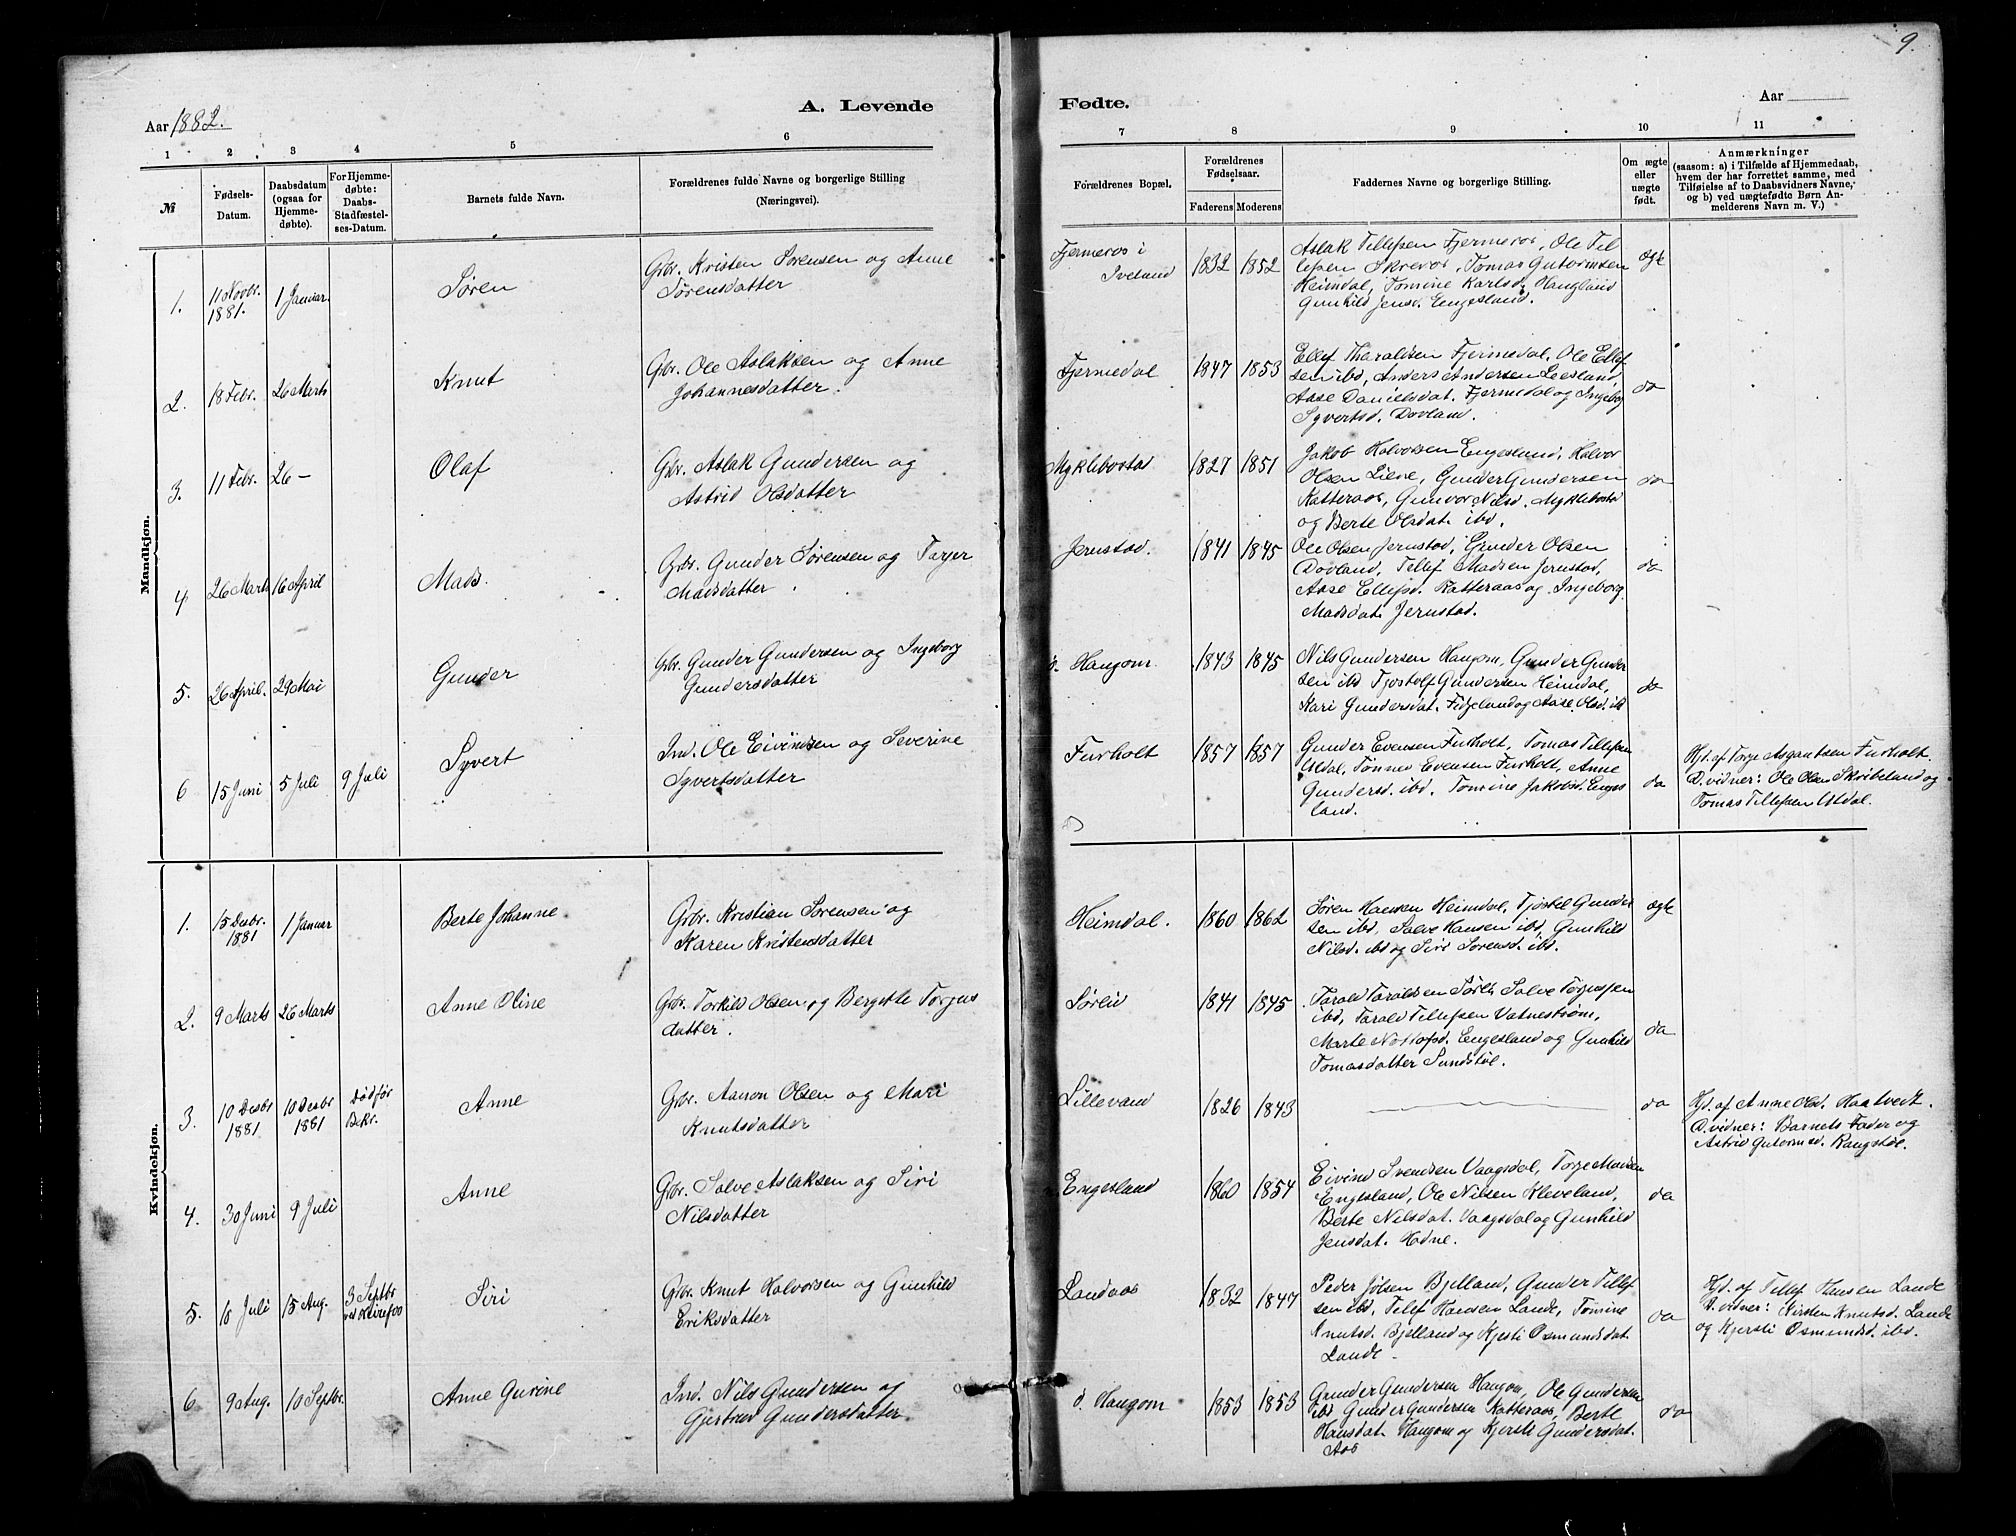 9.
A. Levende
Fødte.
Aar 1882.
Aar
1 2 3 4 5 6
7 8 9 10 11
№
Fødsels-Datum.
Daabsdatum (ogsaa for Hjemmedøbte).
For Hjemmedøbte: Daabs-Stadfæstelses-Datum.
Barnets fulde Navn.
Forældrenes fulde Navne og borgerlige Stilling (Næringsvei).
Forældrenes Bopæl.
Forældrenes Fødselsaar.
Faderens Moderens
Faddernes Navne og borgerlige Stilling.
Om ægte eller uægte født.
Anmærkninger
(saasom: a) i Tilfælde af Hjemmedaab, hvem der har forrettet samme, med Tilføielse af to Daabsvidners Navne, og b) ved uægtefødte Børn Anmelderens Navn m. V.)
Mandkjøn.
1. 11 Novbr. 1881. 1 Januar. Søren
Gbr. Kristen Sørensen og Anne
Sørensdatter
Fjermeros i
Iveland
1832 1852
Aslak Tellefsen Fjermeros, Ole Tel
lefsen Skreros, Tomas Gutormsen
Heimdal, Tomine Karlsd. Haugland
Gunhild Jensd. Engesland.
ægte
2. 18 Febr. 26 Marts Knut
Gbr. Ole Aslaksen og Anne
Johannesdatter.
Fjermedal
1847 1853
Ellef Tharaldsen Fjermedal, Ole Ellef
sen ibd, Anders Andersen Leesland,
Aase Danielsdat. Fjermedal og Ingeborg
Syvertsd. Dovland.
do
3. 11 Febr. 26 — Olaf
Gbr. Aslak Gundersen og
Astrid Olsdatter
Myklebostad
1827 1851
Jakob Halvorsen Engesland, Halvor
Olsen Lieve, Gunder Gundersen
Katteraas, Gunvor Nilsd. Myklebostad
og Berte Olsdat. ibd.
do
4 26 Marts 16 April Mads.
Gbr. Gunder Sørensen og Torjer
Madsdatter
Jerustad.
1841 1845
Ole Olsen Jerustad, Gunder Olsen
Dovland, Tellef Madsen Jerustad,
Aase Ellefsd. Katteraas og Ingeborg
Madsdat. Jerustad.
do
5. 26 April. 29 Mai Gunder
Gbr. Gunder Gundersen og Ingeborg
Gundersdatter
ø. Haugom.
1843 1845
Nils Gundersen Haugom, Gunder Gunder
sen ibd Tjostolf Gundersen Heimdal,
Kari Gundersdat. Fidjeland og Aase Olsd. ib
do
6 15 Juni 5 Juli 9 Juli Syvert
Ind. Ole Eivindsen og Severine
Syvertsdatter
Furholt
1857 1857
Gunder Evensen Furholt, Tomas Tellefsen
Utdal, Tønnes Evensen Furholt, Anne
Gundersd. ibd. Tomine Jakobsd. Enges
land.
do
Hjd. af Torje Asgautsen Furholt.
D.vidner: Ole Olsen Skribeland og
Tomas Tellefsen Utdal.
Kvindekjøn.
1. 15 Desbr. 1881 1 Januar Berte Johanne
Gbr. Kristian Sørensen og
Karen Kristensdatter
Heimdal.
1860 1862
Søren Hansen Heimdal, Tjostel Gunder
sen ibd, Salve Hansen ibd, Gunhild
Nilsd. ibd og Siri Sørensd. ibd.
ægte
2. 9 Marts 26 Marts Anne Oline
Gbr. Torkild Olsen og Bergette Torjus
datter.
Sørlid
1841 1845
Tarald Taraldsen Sørli, Salve Torjussen
ibd, Tarald Tellefsen Vatnestrøm,
Marte Nottofsd. Engesland og Gunhild
Tomasdatter Sundstøl.
do
3. 10 Desbr 1881 10 Desbr 1881 Død før Bekr. Anne
Gbr. Aanon Olsen og Mari
Knutsdatter
Lillevand
1826 1843
do
Hjd. af Anne Olsd. Haatvedt.
D.vidner: Barnets Fader og
Astrid Gutormsd. Rangstøl.
4. 30 Juni 9 Juli Anne
Gbr. Salve Aslaksen og Siri
Nilsdatter
Engesland
1860 1854
Eivind Svendsen Vaagsdal, Torje Madsen
Engesland, Ole Nilsen Kleveland,
Berte Nilsdat. Vaagsdal og Gunhild
Jensdat. Hodne.
da
5. 18 Juli 15 Aug. 3 Septbr Siri
Gbr. Knut Halvorsen og Gunhild
Eriksdatter
Landaas
1832 1847
Peder Jølsen Bjelland, Gunder Tellef
sen ibd, Tellef Hansen Lande, Tomine
Knutsd. Bjelland og Kjersti Osmundsdat.
Lande.
do
Hjd. af Tellef Hansen Lande
D.vidner: Kirsten Knutsd. Lande
og Kjersti Osmundsd. ibd.
6 9 Aug. 10 Septbr. Anne Gurine
Ind. Nils Gundersen og
Gjertrud Gundersdatter
ø. Haugom
1853 1853
Gunder Gundersen Haugom, Ole Gundersen
ibd Gunder Gundersen Katteraas, Berte
Hansdat. Haugom og Kjersti Gundersdat.
Aas
do